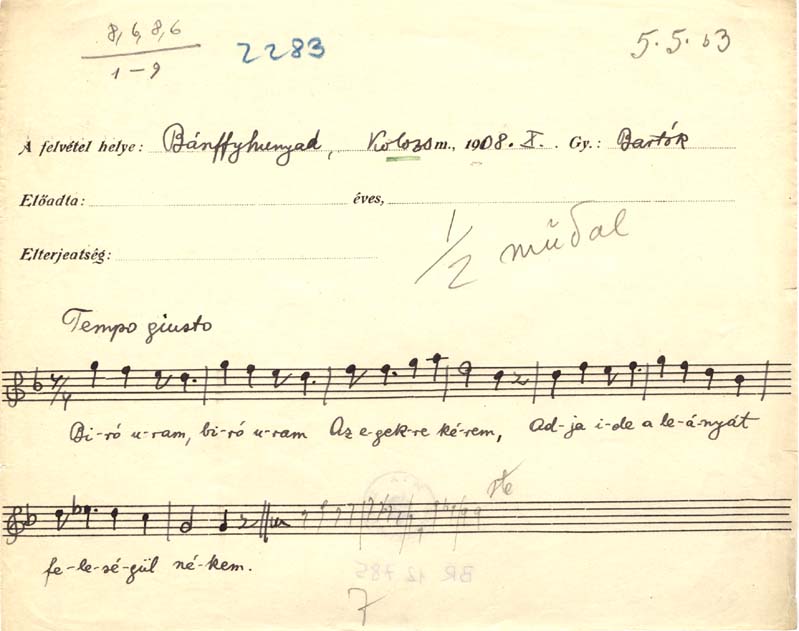 8, 6, 8, 6
1-9
2283
5.5.53
A felvétel helye: Bánffyhunyad, Kolozs m., 1908. X. Gy.: Bartók
Előadta: éves,
Elterjeatség:
1/2 műdal
Tempo giusto
Bi-ró u-ram, bi-ró u-ram Az e-gek-re ké-rem, Ad-ja i-de a le-á-nyát
fe-le-sé-gül né-kem.
BR 12 785
7